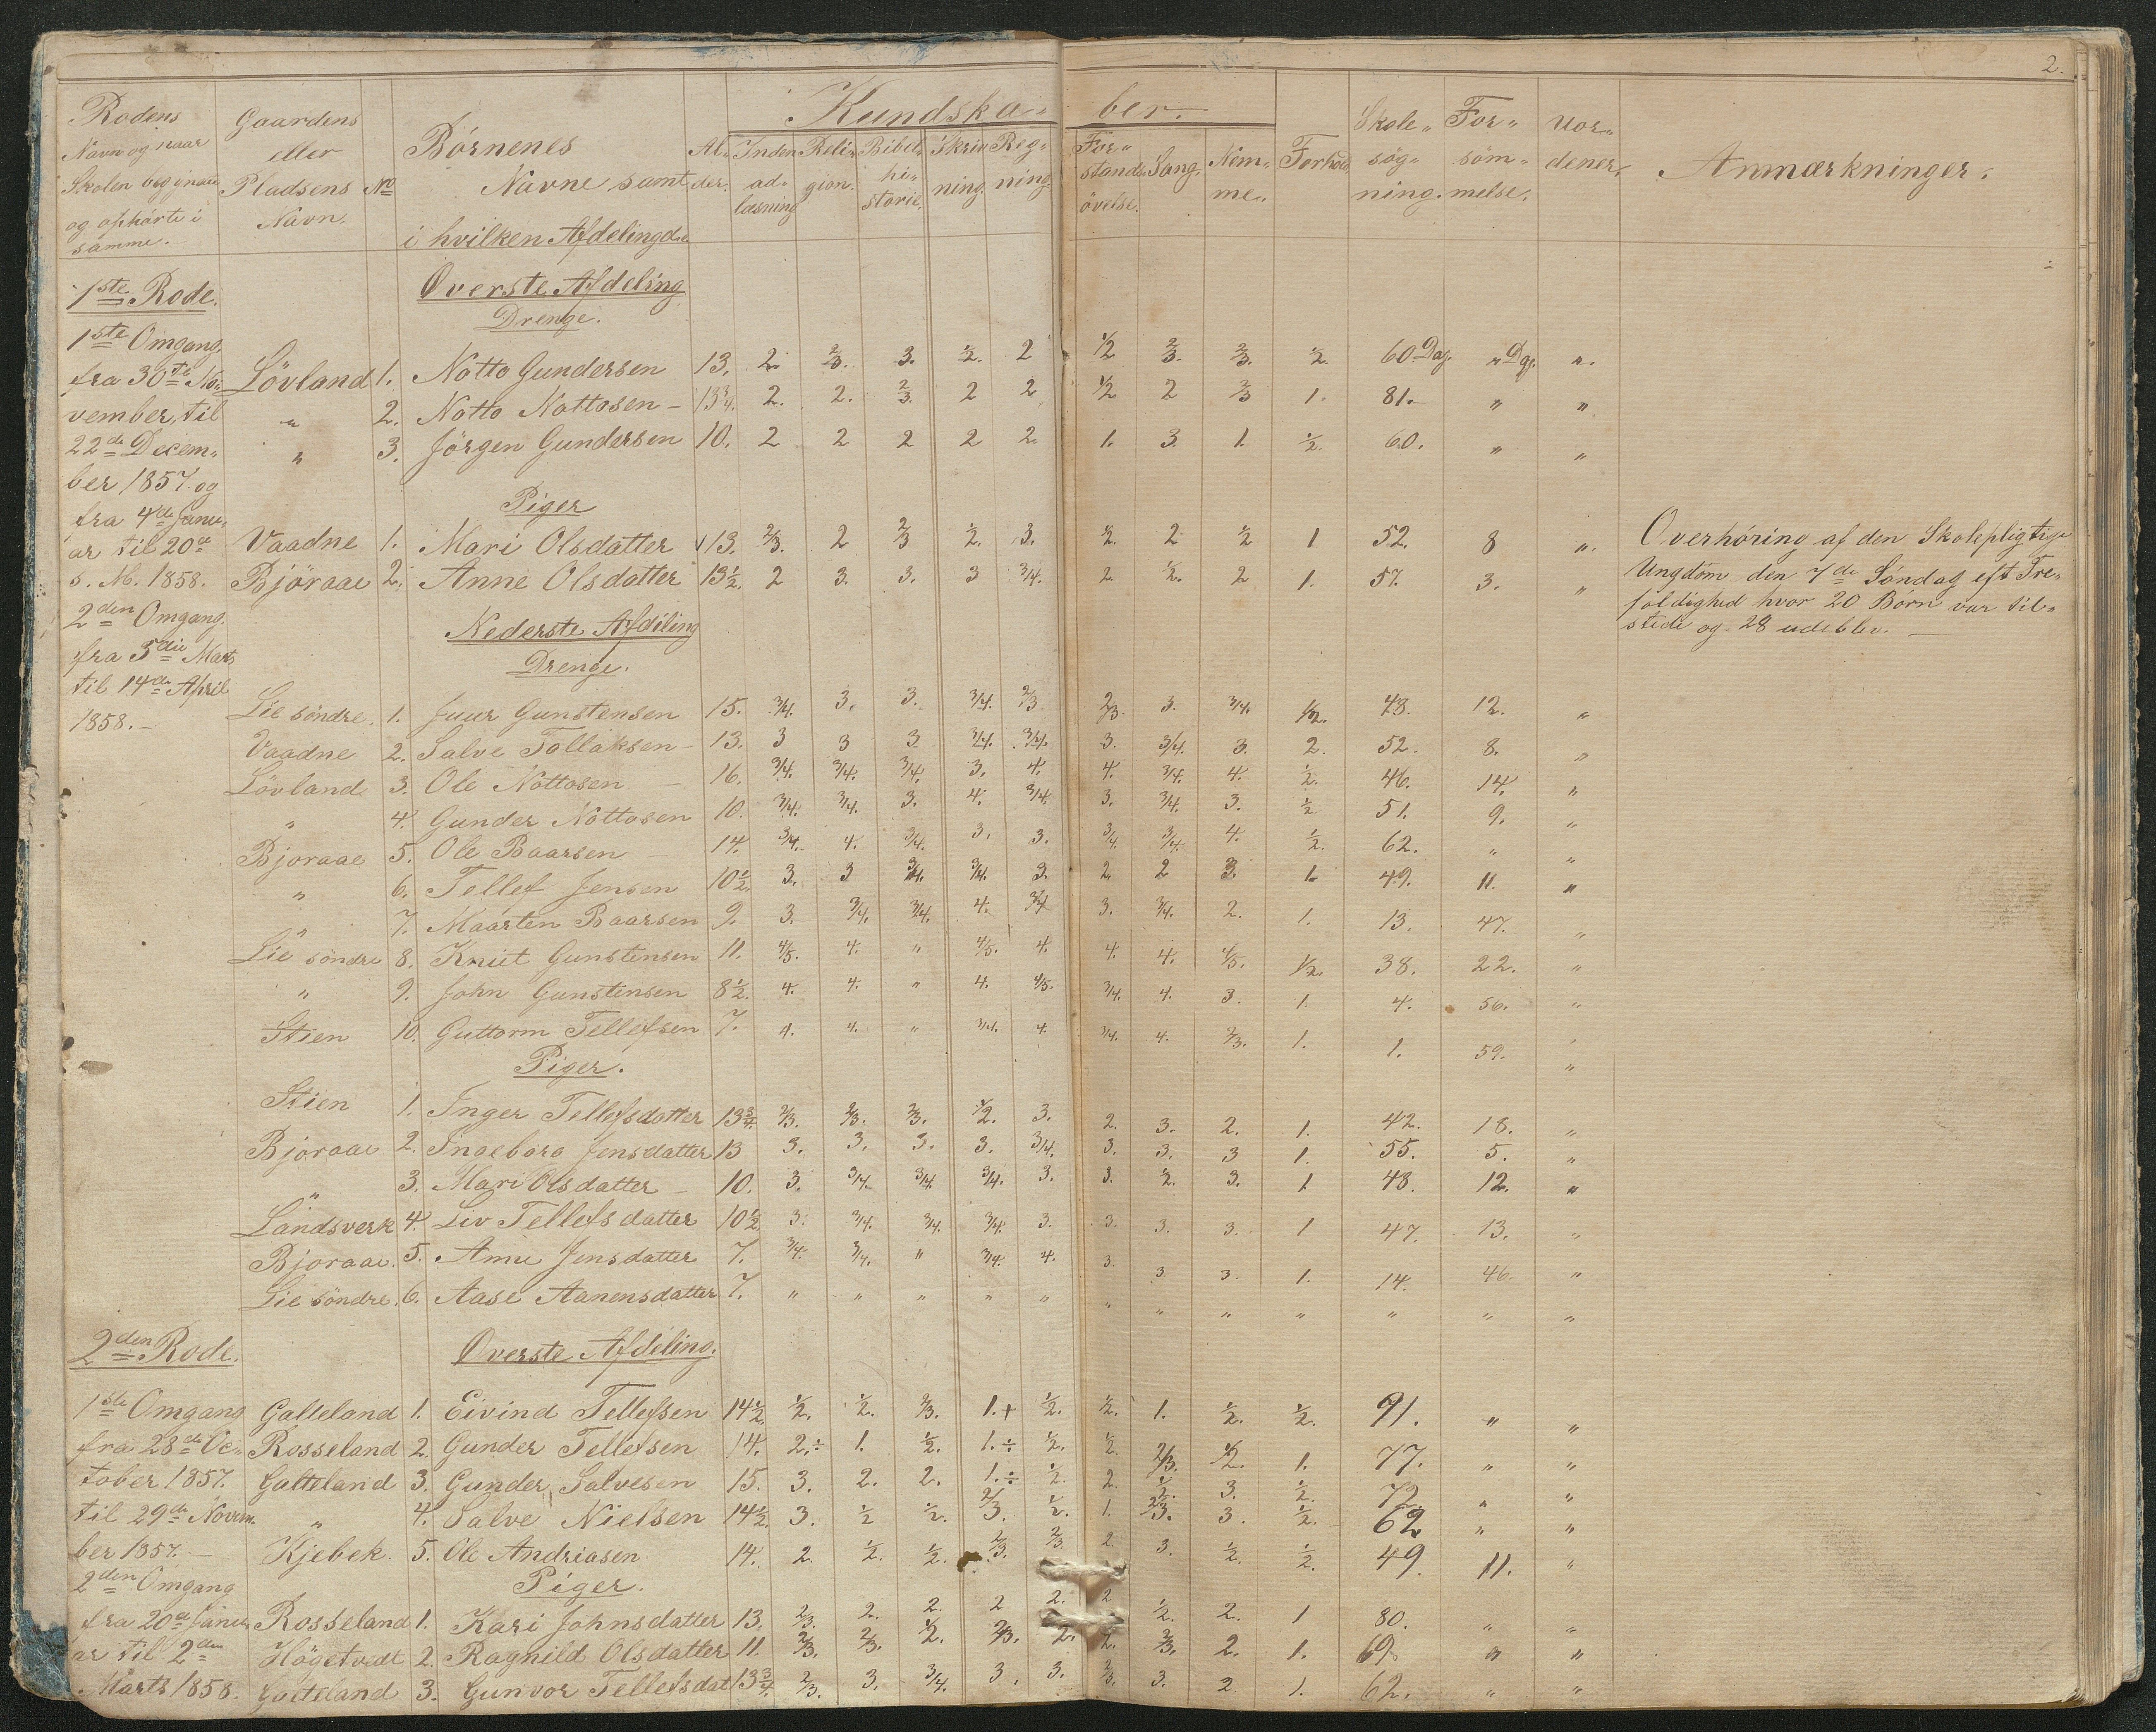 2.
Kundska- ber.
Rodens Navn og naar Skolen begynte og ophørte i samme.
Gaardens eller Pladsens Navn.
No
Børnenes Navne samt i hvilken Afdeling de
Al- der.
Inden- ad- læsning
Reli- gion.
Bibel- hi- storie.
Skriv- ning.
Reg- ning.
For- stands- øvelse.
Sang.
Nem- me.
Forhold
Skole- søg- ning.
For- søm- melse.
Uor- dener.
Anmærkninger.
1ste Rode.
Øverste Afdeling
Drenge.
1ste Omgang.
fra 30te No-
vember, til
22de Decem-
ber 1857. og
fra 4de Janu-
ar til 20de
s. M. 1858.
2den Omgang.
fra 5die Marts
til 14de April
1858.-
Lövland 1. Notto Gundersen 13. 2. 2/3. 3. 1/2. 2 1/2 2/3. 2/3. 1/2. 60 Dag. " Dge. ".
" 2. Notto Nottosen - 13 3/4. 2. 2. 2/3. 2 2 1/2 2 2/3 1. 81. " "
" 3. Jörgen Gundersen 10. 2 2 2 2 2. 1. 3. 1. 1/2. 60. " "
Piger
Vaadne 1. Mari Olsdatter 13. 2/3. 2 2/3 1/2. 3. 1/2. 2 1/2 1 52. 8 ".
Björaae 2. Anne Olsdatter 13 1/2. 2 3. 3. 3 3/4. 2 1/2. 2 1. 57. 3. "
Overhøring af den Skolepligtige
Ungdom den 7de Søndag eft Tre-
foldighed hvor 20 Børn var til-
stede og 28 udeblev. -
Nederste Afdeling
Drenge.
Lie söndre. 1. Juur Gunstensen 15. 3/4. 3. 3. 3/4. 2/3. 2/3. 3. 3/4. 1/2. 48. 12. "
Vaadne 2. Salve Tollaksen - 13. 3 3 3 3/4. 3/4. 3. 3/4. 3. 2. 52. 8. "
Lövland 3. Ole Nottosen - 16. 3/4. 3/4. 3/4. 3. 4. 4. 3/4. 4. 1/2. 46. 14. "
" 4. Gunder Nottosen 10. 3/4. 3/4. 3. 4. 3/4. 3. 3/4. 3. 1/2 51. 9. "
Bjoraae 5. Ole Baarsen - 14. 3/4. 4. 3/4. 3. 3. 3/4 3/4. 4. 1/2. 62. " "
" 6. Tellef Jensen 10 1/2. 3. 3 3/4. 3/4. 3. 2. 2 3. 1. 49. 11. "
" 7. Maarten Baarsen 9. 3. 3/4. 3/4. 4. 3/4 3. 3/4. 2. 1. 13. 47. "
Lie söndre 8. Knut Gunstensen 11. 4/5. 4. " 4/5. 4. 4. 4. 4/5. 1/2. 38. 22. "
" 9. John Gunstensen 8 1/2. 4. 4. " 4. 4/5. 3/4. 4. 3. 1. 4. 56. "
Stien 10. Guttorm Tellefsen 7. 4. 4. " 3/4. 4. 3/4. 4. 2/3. 1. 1. 59. "
Piger.
Stien 1. Inger Tellefsdatter 13 3/4. 2/3. 2/3. 2/3. 1/2. 3. 2. 3. 2. 1. 42. 18. "
Bjoraae 2. Ingeborg Jensdatter 13 3. 3. 3. 3. 3/4. 3. 3. 3 1. 55. 5. "
" 3. Mari Olsdatter - 10. 3. 3/4. 3/4. 3/4. 3. 3. 2. 3. 1 48. 12. "
Landsverk 4. Liv Tellefsdatter 10 1/2. 3. 3/4. 3/4. 3/4. 3. 3. 3. 3. 1 47. 13. "
Bjoraae. 5. Anne Jensdatter 7. 3/4. 3/4. " 3/4. 4. 3. 3. 3. 1. 14. 46. "
Lie söndre. 6. Aase Aanensdatter 7. " " " " " " " " " " " "
2den Rode.
Øverste Afdeling.
1ste Omgang
fra 28de Oc-
tober 1857.
til 29de Novem-
ber 1857. -
2den Omgang
fra 20de Janu-
ar til 2den
Marts 1858.
Galteland 1. Eivind Tellefsen 14 1/2. 1/2. 1/2. 2/3. 1.+ 1/2. 1/2. 1. 1/2. 1/2. 91. " "
Rosseland 2. Gunder Tellefsen 14. 2.÷ 1. 1/2. 1.÷ 1/2. 1/2. 2/3. 1/2. 1. 77. " "
Galteland 3. Gunder Salvesen 15. 3. 2. 2. 1.÷ 1/2. 2. 1/2. 3. 1/2. 72. " "
" 4. Salve Nielsen 14 1/2. 3. 1/2 1/2. 2/3. 1/2. 1. 2/3. 3. 1/2. 62 " "
Kjebek. 5. Ole Andriasen 14. 2. 1/2. 1/2. 2/3. 2/3. 2. 3. 1/2. 1/2. 49. 11. "
Piger.
Rosseland 1. Kari Johnsdatter 13. 2/3. 2. 2. 2 2. 2 1/2. 2. 1 80. " "
Högetvedt 2. Ragnild Olsdatter 11. 2/3. 2/3. 1/2. 2/3. 2. 2. 2/3. 2. 1. 69. " "
Galteland 3. Gunvor Tellefsdat 13 3/4. 2/3. 3. 3/4. 3. 3. 2/3. 3. 2. 1. 62. " "